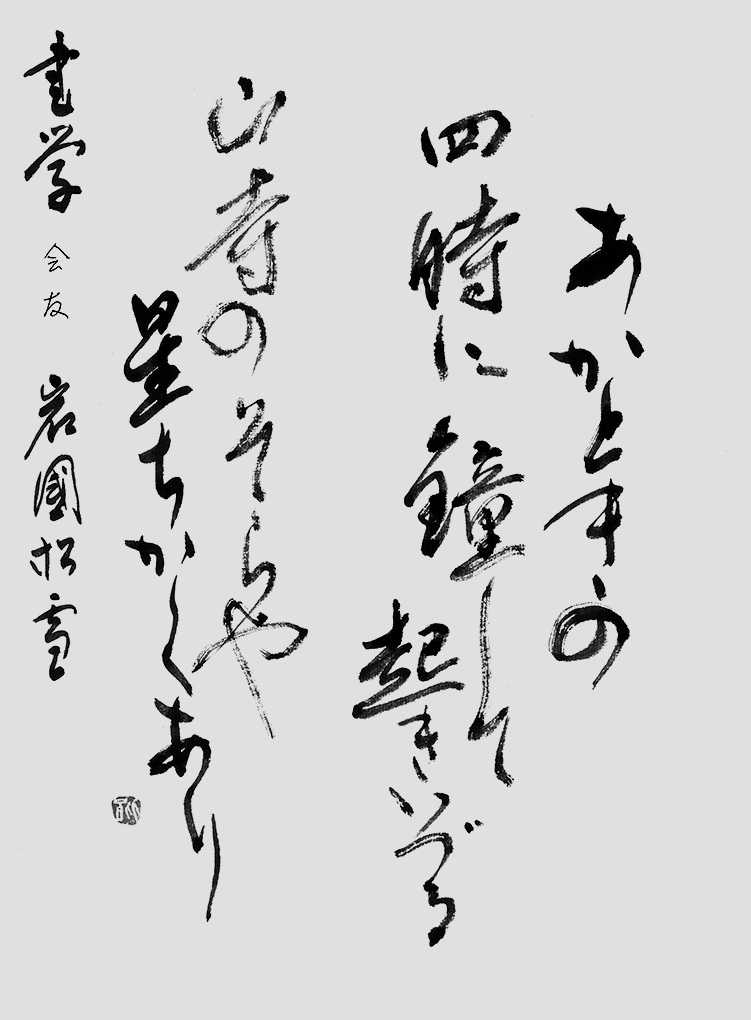 あかときの
四時に鐘して
起きいづる
山寺のそらや
星ちかくあり
書学 会友 岩國松雪